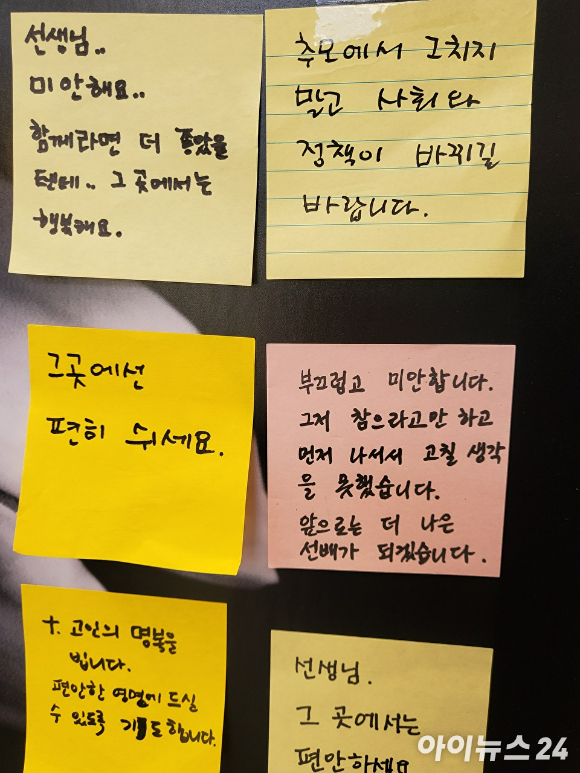 선생님..
미안해요..
함께라면 더 좋았을
텐데.. 그 곳에서는
행복해요.
추모에서 그치지
말고 사회와
정책이 바뀌길
바랍니다.
그곳에선
편히 쉬세요.
부끄럽고 미안합니다.
그저 참으라고만 하고
먼저 나서서 고칠 생각
을 못했습니다.
앞으로는 더 나은
선배가 되겠습니다.
+. 고인의 명복을
빕니다.
편안한 영면에 드실
수 있도록 기도합니다.
선생님.
그 곳에서는
편안하세요
아이뉴스24